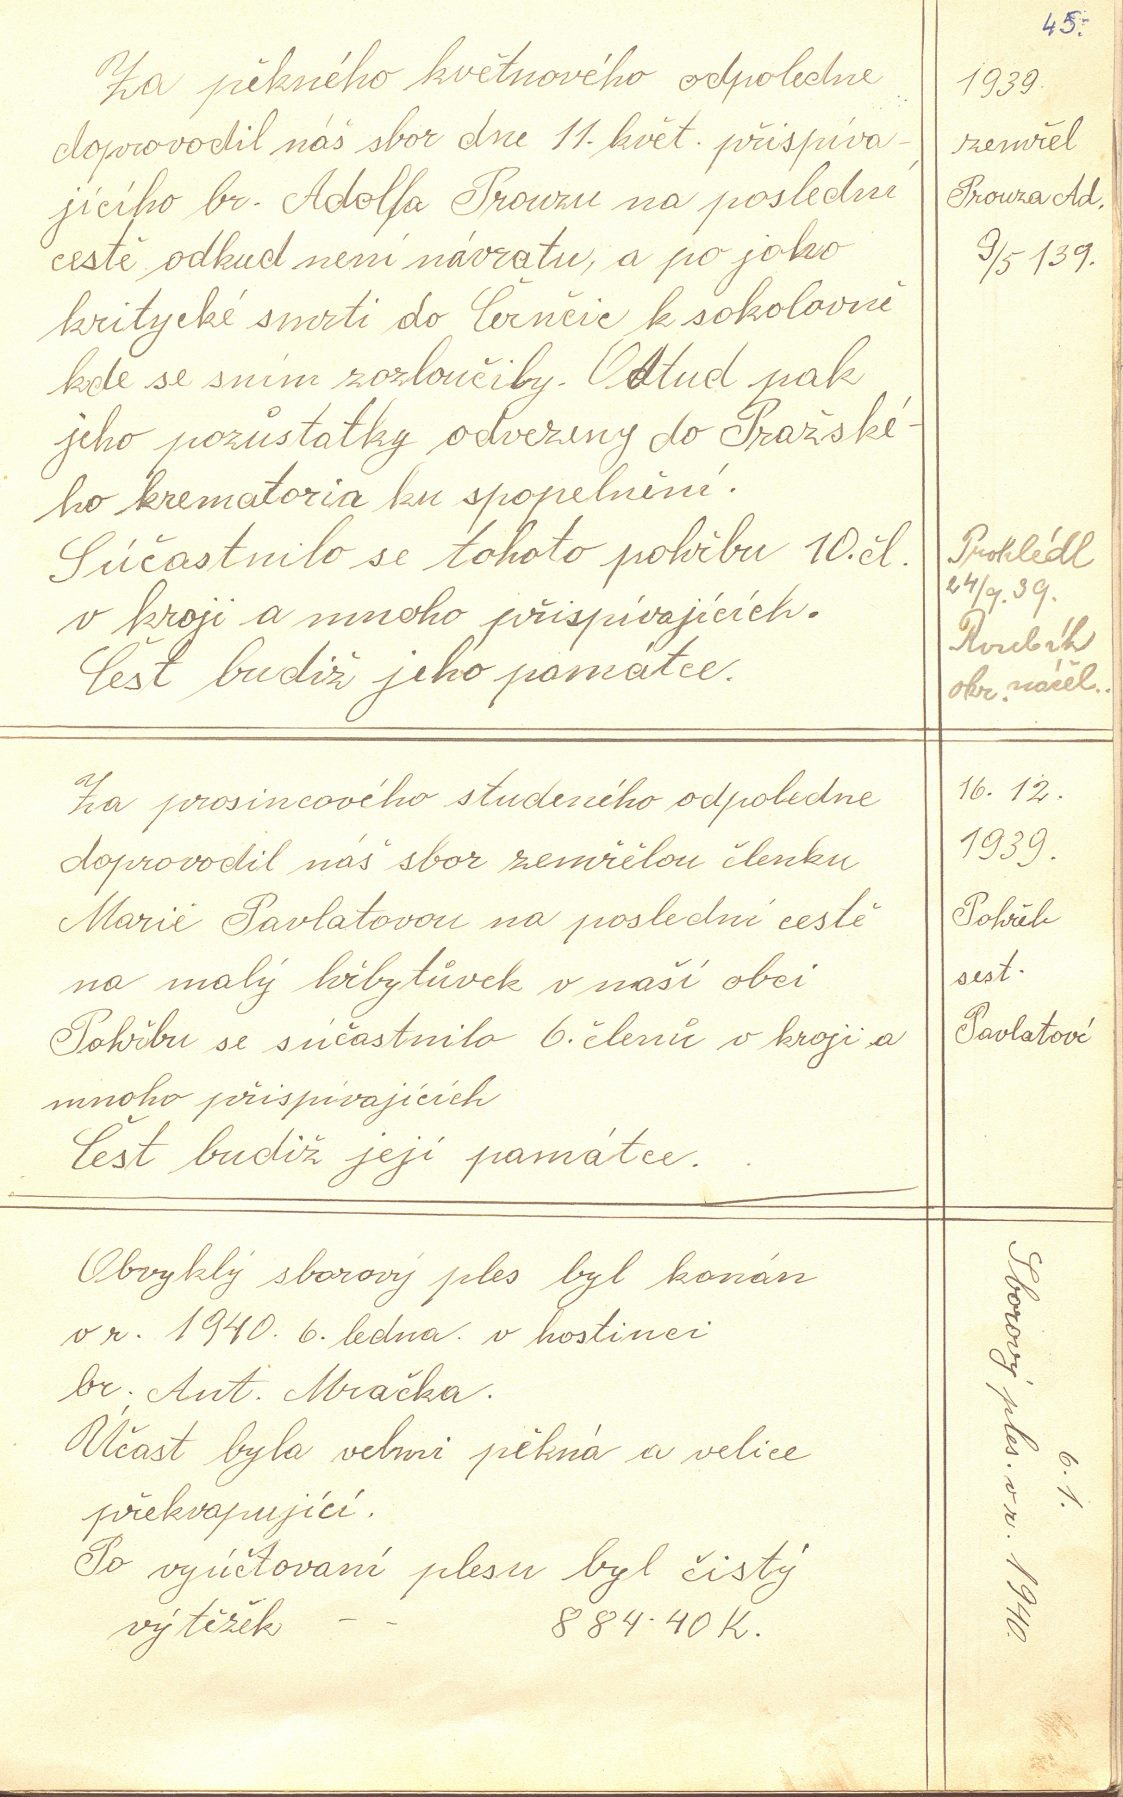 45.
Za pěkného květnového odpoledne
doprovodil náš sbor dne 11. květ. přispíva-
jícího br. Adolfa Prouzu na poslední
cestě odkud není návratu, a po jeho
kritycké smrti do Černčic k sokolovně
kde se sním rozloučiby. Odtud pak
jeho pozůstatky odvezeny do Pražské-
ho krematoria ku spopelnění.
Súčastnilo se tohoto pohřbu 10. čl.
v kroji a mnoho přispívajících.
Čest budiž jeho památce.
1939.
zemřel
Prouza Ad.
9/5 139.
Prohlédl
24/9. 39.
okr. náčel..
Za prosincového studeného odpoledne
doprovodil náš sbor zemřělou členku
Marié Pavlatovou na poslední cestě
na malý hřbytůvek v naší obci
Pohřbu se súčastnilo 6. členů v kroji a
mnoho přispívajících
Čest budiž její památce.
16. 12.
1939.
Pohřeb
sest.
Pavlatové
Obvyklý sborový ples byl konán
v r. 1940. 6. ledna. v hostinci
br. Ant. Mračka.
Účast byla velmi pěkná a velice
překvapující.
Po vyúčtovaní plesu byl čistý
výtěžek - - 884.40 K.
6. 1.
Sborový ples. v r. 1940.